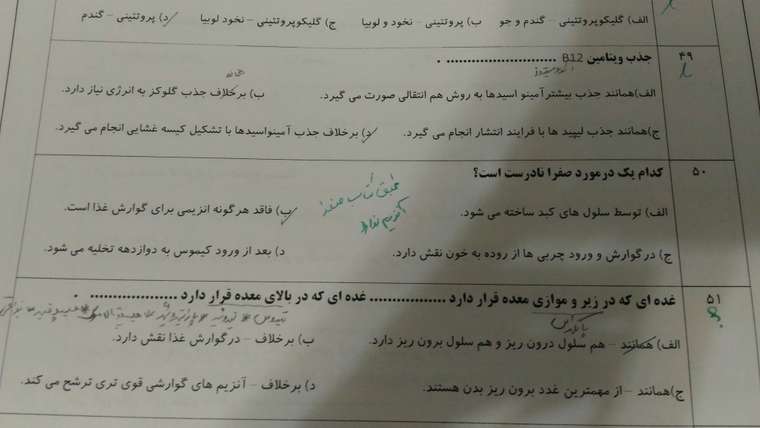 الف) گلیکوپروتئینی – گندم و جو ب) پروتئینی – نخود و لوبیا ج) گلیکوپروتئینی – نخود لوبیا د) پروتئینی – گندم
۴۹ جذب ویتامین B12 ............................ .
الف)همانند جذب بیشتر آمینو اسیدها به روش هم انتقالی صورت می گیرد. ب) برخلاف جذب گلوکز به انرژی نیاز دارد.
ج)همانند جذب لیپید ها با فرایند انتشار انجام می گیرد. د) برخلاف جذب آمینواسیدها با تشکیل کیسه غشایی انجام می گیرد.
۵۰ کدام یک درمورد صفرا نادرست است؟
طبق کتاب صفرا
آنزیم ندارد
الف) توسط سلول های کبد ساخته می شود. ب) فاقد هرگونه انزیمی برای گوارش غذا است.
ج) در گوارش و ورود چربی ها از روده به خون نقش دارد. د) بعد از ورود کیموس به دوازدهه تخلیه می شود.
۵۱ غده ای که در زیر و موازی معده قرار دارد .................. غده ای که در بالای معده قرار دارد .................... .
پانکراس
الف) همانند – هم سلول درون ریز و هم سلول برون ریز دارد. ب) برخلاف – در گوارش غذا نقش دارد.
ج)همانند – از مهمترین غدد برون ریز بدن هستند. د) برخلاف – آنزیم های گوارشی قوی تری ترشح می کند.